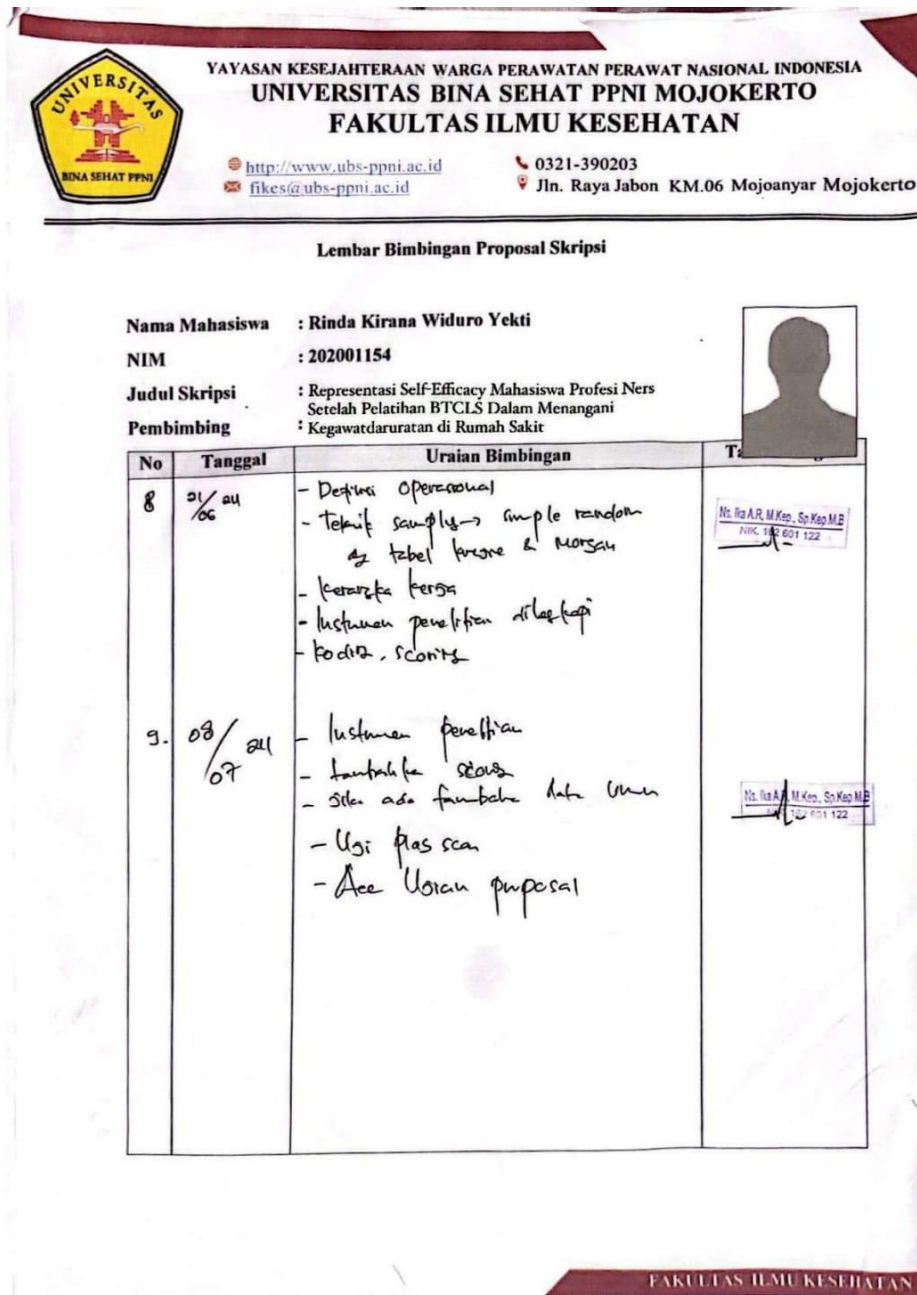 YAYASAN KESEJAHTERAAN WARGA PERAWATAN PERAWAT NASIONAL INDONESIA
UNIVERSITAS BINA SEHAT PPNI MOJOKERTO
FAKULTAS ILMU KESEHATAN
UNIVERSITAS
BINA SEHAT PPNI
http://www.ubs-ppni.ac.id
0321-390203
fikes@ubs-ppni.ac.id
Jln. Raya Jabon KM.06 Mojoanyar Mojokerto
Lembar Bimbingan Proposal Skripsi
Nama Mahasiswa : Rinda Kirana Widuro Yekti
NIM : 202001154
Judul Skripsi : Representasi Self-Efficacy Mahasiswa Profesi Ners
Setelah Pelatihan BTCLS Dalam Menangani
Pembimbing : Kegawatdaruratan di Rumah Sakit
No Tanggal Uraian Bimbingan
8 21/06 24 - Definisi Operasional
- Teknik sampling → simple random
tabel & Morgan
- Kerangka kerja
- Instrumen penelitian dilengkapi
- Koding, scoring
Ns. Ika A.R, M.Kep., Sp.Kep.M.B
NIK. 162 601 122
9. 08/07 24 - Instrumen penelitian
- tambahkan scoring
- data umum
- Uji
- Acc Ujian proposal
Ns. Ika A.R, M.Kep., Sp.Kep.M.B
162 601 122
FAKULTAS ILMU KESEHATAN